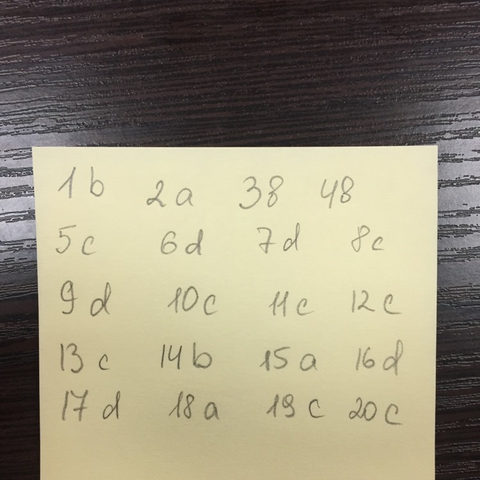 1b 2a 38 48
5c 6d 7d 8c
9d 10c 11c 12c
13c 14b 15a 16d
17d 18a 19c 20c